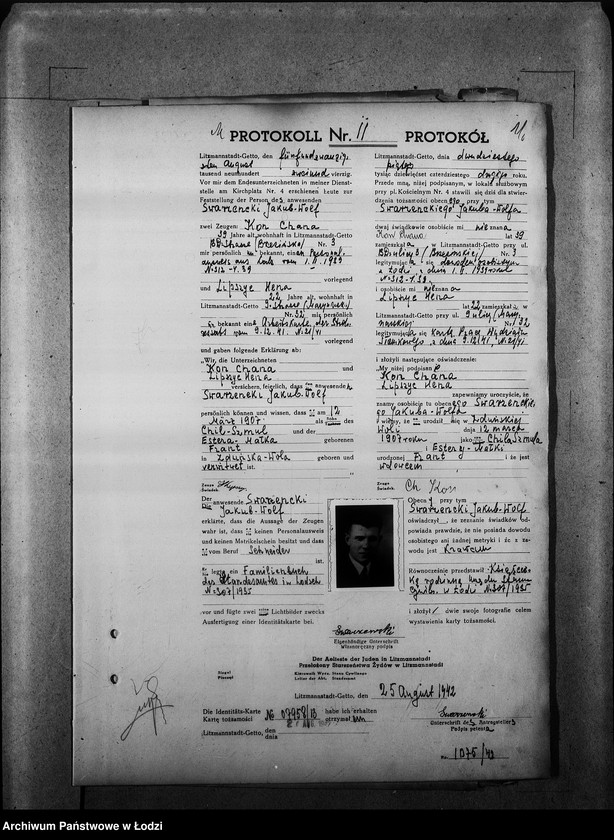 PROTOKOLL Nr. 11 PROTOKÓŁ
Litzmannstadt-Getto, den fünfundzwanzig-
sten August
tausend neunhundert zweiund vierzig.
Vor mir dem Endesunterzeichneten in meiner Dienst-
stelle am Kirchplatz Nr. 4 erschienen heute zur
Feststellung der Person des anwesenden
Swarzencki Jakub-Wolf
zwei Zeugen: Kon Chana
39 Jahre alt, wohnhaft in Litzmannstadt-Getto
Nr. 3
mir persönlich bekannt, einen Personal-
ausweis aus Lodz vom 1.II.1939
N-312-V.39
vorlegend
und Lipszyc Hena
22 Jahre alt, wohnhaft in
Litzmannstadt-Getto
Nr. 32 mir persönlich
bekannt eine Arbeitskarte des
vom 9.12.41. N.21/41
vorlegend
und gaben folgende Erklärung ab:
„Wir, die Unterzeichneten
Kon Chana und
Lipszyc Hena
versichern, feierlich, dass den anwesenden
Swarzencki Jakub-Wolf
persönlich können und wissen, dass am 12
März 1907 als
Chil-Szmul und der
Estera-Małka geborenen
Frant
in Zduńska-Wola geboren und
verwitwet ist.
Zeuge
Świadek
Der anwesende Swarzencki
Die Jakub-Wolf
erklärte, dass die Aussage der Zeugen
wahr ist, dass keinen Personalausweis
und keinen Matrikelschein besitzt und dass
vom Beruf Schneider
ist.
legte ein Familienbuch
des Standesamtes in Lodsch
N-307/1935
vor und fügte zwei Lichtbilder zwecks
Ausfertigung einer Identitätskarte bei.
Litzmannstadt-Getto, dnia dwudziestego
piątego
tysiąc dziewięćset czterdziestego drugiego roku.
Przede mną, niżej podpisanym, w lokalu służbowym
przy pl. Kościelnym Nr. 4 stawili się dziś dla stwier-
dzenia tożsamości obecnego przy tym
Swarzenckiego Jakuba-Wolfa
dwaj świadkowie osobiście mi nieznana
Kon Chana lat 39
zamieszkała w Litzmannstadt-Getto przy ul.
Nr. 3
legitymująca się dowodem osobistym
z Łodzi z dnia 1.II.1939 roku
N-312-V.39.
i osobiście mi nieznana
Lipszyc Hena
lat 22 zamieszkała w
Litzmannstadt-Getto przy ul.
Nr. 32
legitymująca się
z dnia 9.12.41. N.21/41
i złożyli następujące oświadczenie:
„My niżej podpisane
Kon Chana
Lipszyc Hena
zapewniamy uroczyście, że
znamy osobiście tu obecnego Swarzenckie-
go Jakuba-Wolfa
i wiemy, że urodził się w Zduńskiej
Woli dnia 12 marca
1907 roku jako Chila Szmula
i Estery-Małki
urodzonej Frant i że jest
wdowcem
Zeuge
Świadek Ch. Kon
Obecny przy tym
Swarzencki Jakub-Wolf
oświadczył, że zeznanie świadków od-
powiada prawdzie, że nie posiada dowodu
osobistego ani żadnej metryki i że z za-
wodu jest krawcem
Równocześnie przedstawił Książecz-
kę rodzinną Urzędu Stanu
Cywiln. w Łodzi N-307/1935
i złożył dwie swoje fotografie celem
wystawienia karty tożsamości.
Eigenhändige Unterschrift
Własnoręczny podpis
Der Aelteste der Juden in Litzmannstadt
Przełożony Starszeństwa Żydów w Litzmannstadt
Siegel
Pieczęć
Litzmannstadt-Getto, den 25 August 1942
Die Identitäts-Karte
Kartę tożsamości No 07958/B habe ich erhalten
otrzymałem
Litzmannstadt-Getto, den
dnia
Swarzenski
Podpis petenta
1075/42
Archiwum Państwowe w Łodzi